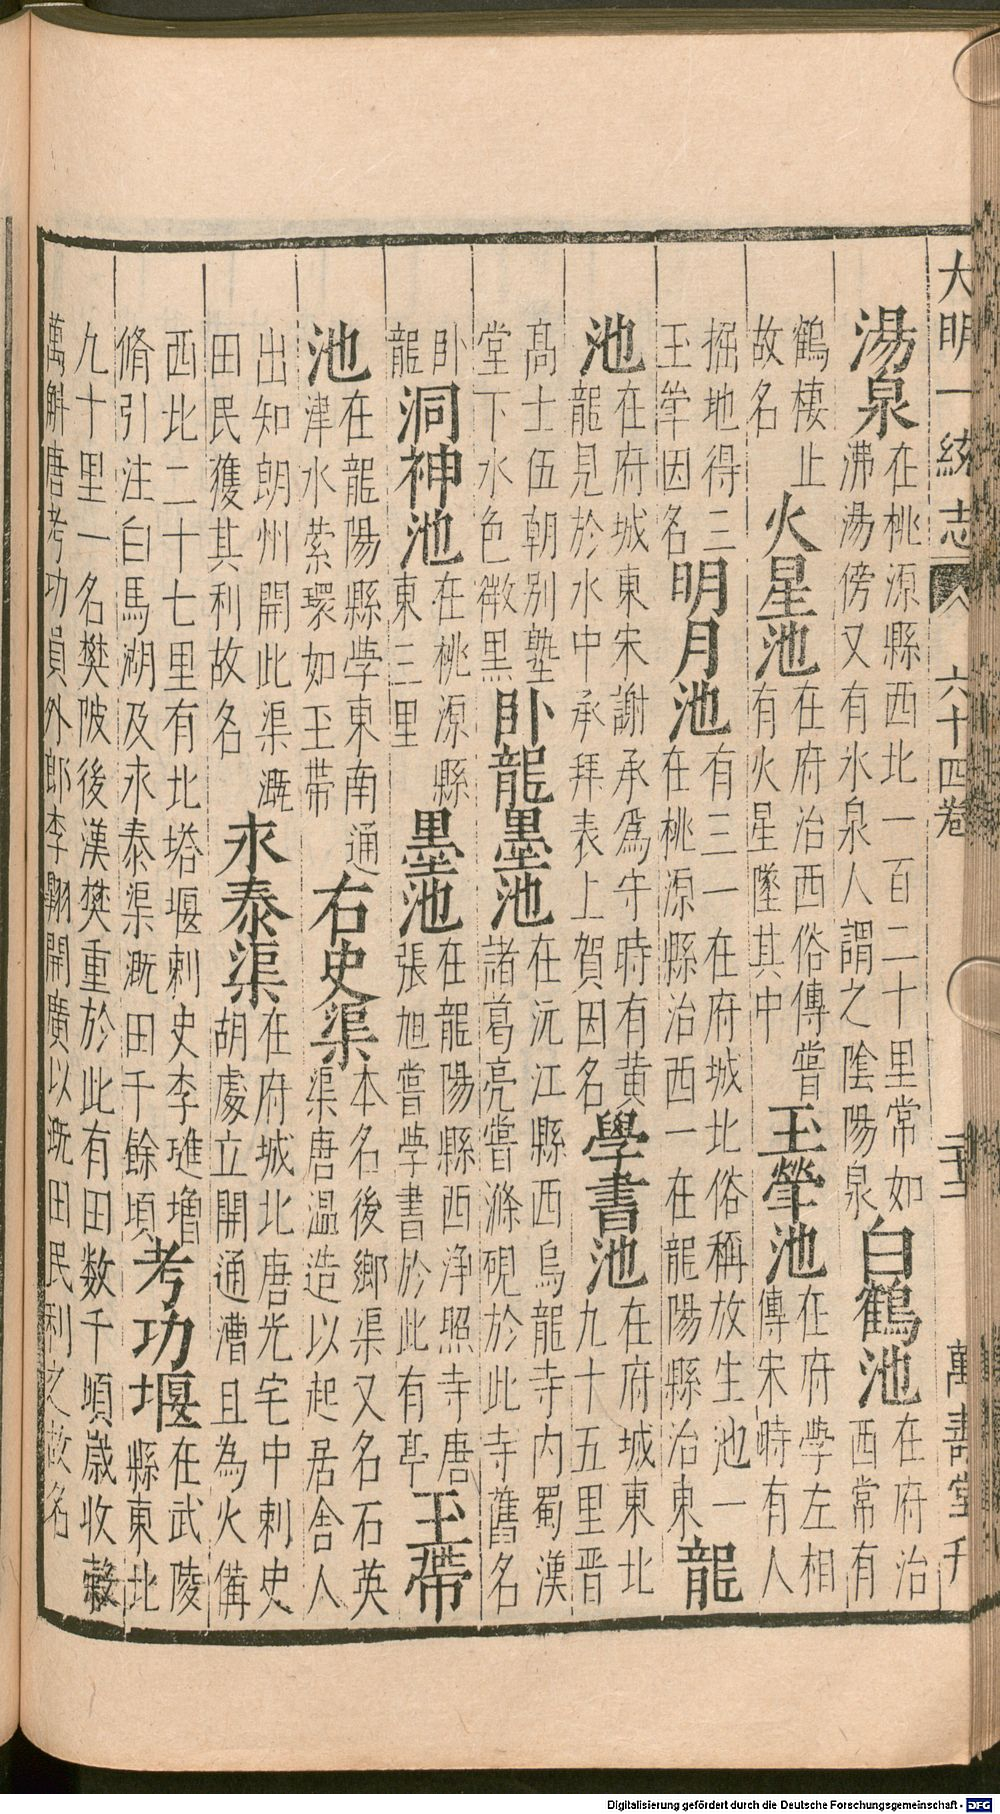 大明一統志 六十四卷 二十三 萬壽堂刊
湯泉 在桃源縣西北一百二十里常如
沸湯傍又有氷泉人謂之陰陽泉 白鶴池 在府治
西常有
鶴棲止
故名 火星池 在府治西俗傳嘗
有火星墜其中 玉犖池 在府學左相
傳宋時有人
掘地得三
玉犖因名 明月池 有三一在府城北俗稱放生池一
在桃源縣治西一在龍陽縣治東 龍
池 在府城東宋謝承爲守時有黄
龍見於水中承拜表上賀因名 學書池 在府城東北
九十五里晋
高士伍朝别墊
堂下水色微黒 卧龍墨池 在沅江縣西烏龍寺内蜀漢
諸葛亮嘗滌硯於此寺舊名
卧
龍 洞神池 在桃源縣
東三里 墨池 在龍陽縣西浄照寺唐
張旭嘗學書於此有亭 玉帶
池 在龍陽縣學東南通
津水縈環如玉带 右史渠 本名後鄉渠又名石英
渠唐温造以起居舍人
出知朗州開此渠漑
田民獲其利故名 永泰渠 在府城北唐光宅中刺史
胡處立開通漕且為火備
西北二十七里有北塔堰刺史李璡增
脩引注白馬湖及永泰渠漑田千餘頃 考功堰 在武陵
縣東北
九十里一名樊陂後漢樊重於此有田数千頃歳收榖
萬斛唐考功員外郎李翺開廣以漑田民利之故名
Digitalisierung gefördert durch die Deutsche Forschungsgemeinschaft - DFG